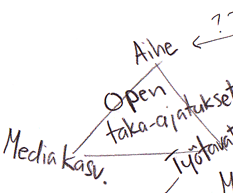 ??
Aihe
Open
taka-ajatukset
Mediakasv.
Työtavat
M